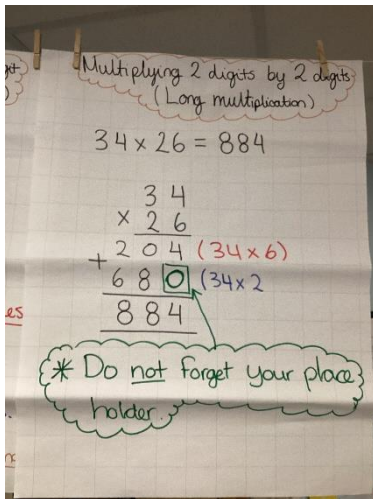 Multiplying 2 digits by 2 digits
(Long multiplication)
34 × 26 = 884
34
× 26
204 (34×6)
+
680 (34×2
884
* Do not forget your place
holder.
es